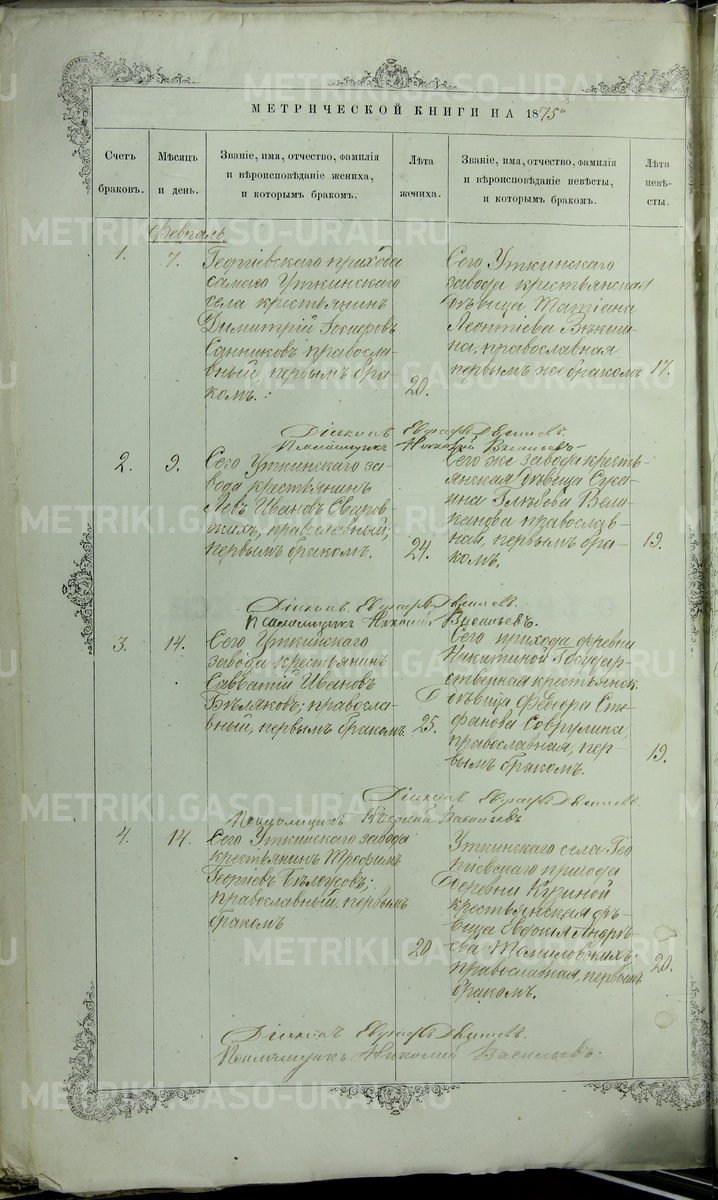 МЕТРИЧЕСКОЙ КНИГИ НА 1875
Счетъ браковъ.
Мѣсяцъ и день.
Званіе, имя, отчество, фамилія
и вѣроисповѣданіе жениха,
и которымъ бракомъ.
Лѣта жениха.
Званіе, имя, отчество, фамилія
и вѣроисповѣданіе невѣсты,
и которымъ бракомъ.
Лѣта невѣ-
сты.
Февраль.
1.
7.
Георгіевскаго прихода
самаго Уткинскаго
села крестьянинъ
Димитрій
Санниковъ правосла-
вный, первымъ бра-
комъ.
20.
Сего Уткинскаго
завода крестьянская
дѣвица Татіана
Леонтіева
православная
первымъ же бракомъ
17.
Діаконъ Евграфъ
Псаломщикъ Николай Васильевъ
2.
9.
Сего Уткинскаго за-
вода крестьянинъ
Левъ Ивановъ
православный;
первымъ бракомъ.
24.
Сего же завода кресть-
янская дѣвица
Глѣбова Вели-
канова православ-
ная, первымъ бра-
комъ.
19.
Діаконъ Евграфъ
Псаломщикъ Николай Васильевъ.
3.
14.
Сего Уткинскаго
завода крестьянинъ
Савватій Ивановъ
Бѣляковъ; правосла-
вный, первымъ бракомъ
25.
Сего прихода деревни
Никитиной Государ-
ственная крестьянск.
дѣвица Феодора Сте-
фанова Соврулина,
православная, пер-
вымъ бракомъ.
19.
Діаконъ Евграфъ
Псаломщикъ Николай Васильевъ
4.
14.
Сего Уткинскаго завода
крестьянинъ Трофимъ
Георгіевъ Бѣлоусовъ;
православный, первымъ
бракомъ
20
Уткинскаго села Гео
ргіевскаго прихода
деревни Куриной
крестьянская дѣ-
вица Евдокія Андрѣ-
ева Томиловскихъ.
православная, первымъ
бракомъ.
20.
Діаконъ Евграфъ
Псаломщикъ Николай Васильевъ.
METRIKI.GASO-URAL.RU